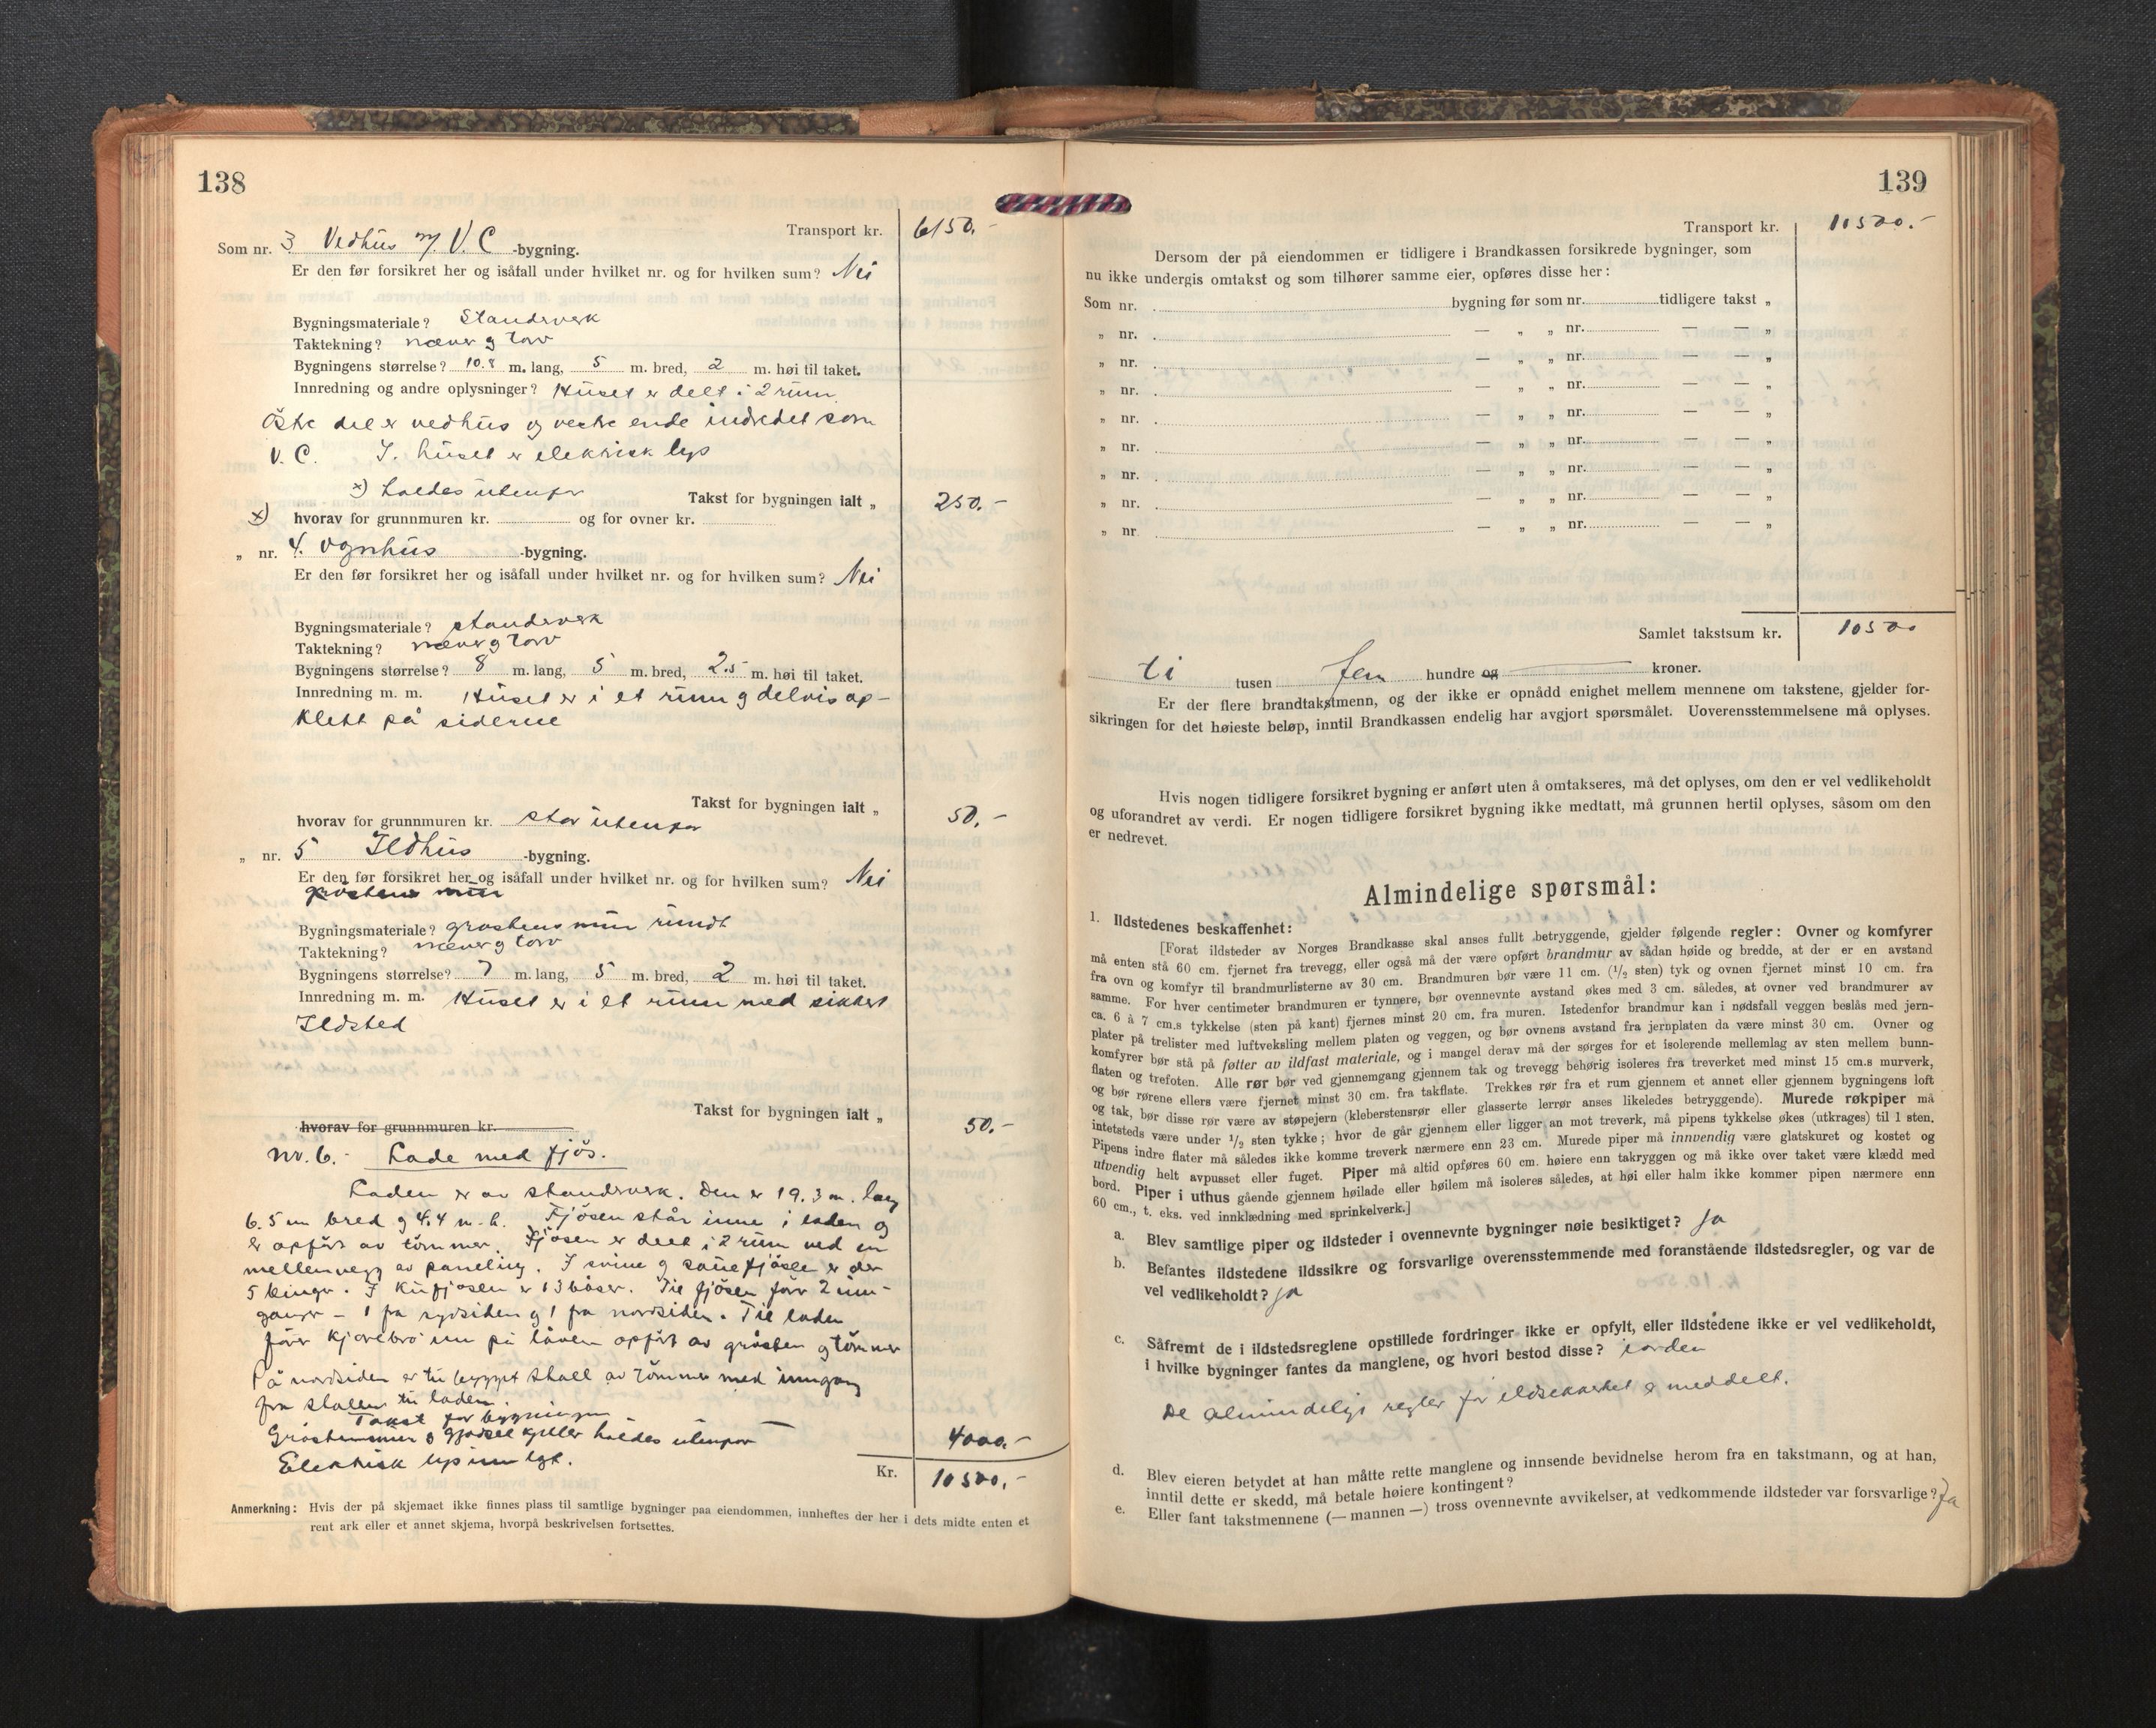 138
Transport kr. 6150.-
Som nr. 3 Vedhus m/ V.C -bygning.
Er den før forsikret her og isåfall under hvilket nr. og for hvilken sum? Nei
Bygningsmateriale? Standverk
Taktekning? næver og torv
Bygningens størrelse? 10.8 m. lang, 5 m. bred, 2 m. høi til taket.
Innredning og andre oplysninger? Huset er delt i 2 rum.
Östre del er vedhus og vestre ende indredet som
V.C. I huset er elektrisk lys
x) holdes utenfor Takst for bygningen ialt „ 250.-
x) hvorav for grunnmuren kr. og for ovner kr.
„ nr. 4. Vognhus -bygning.
Er den før forsikret her og isåfall under hvilket nr. og for hvilken sum? Nei
Bygningsmateriale? standverk
Taktekning? næver og torv
Bygningens størrelse? 8 m. lang, 5 m. bred, 2.5 m. høi til taket.
Innredning m. m. Huset er i et rum og delvis op-
klett på siderne
Takst for bygningen ialt „ 50.-
hvorav for grunnmuren kr. står utenfor
„ nr. 5 Ildhus -bygning.
Er den før forsikret her og isåfall under hvilket nr. og for hvilken sum? Nei
gråstens mur
Bygningsmateriale? gråstens mur rundt
Taktekning? næver og torv
Bygningens størrelse? 7 m. lang, 5 m. bred, 2 m. høi til taket.
Innredning m. m. Huset er i et rum med sikkert
Ildsted
Takst for bygningen ialt „ 50.-
hvorav for grunnmuren kr.
Nr. 6.- Lade med fjös.
Laden er av standverk. Den er 19.3 m. lang
6.5 m bred og 4.4 m. h. Fjösen står inne i laden og
er opfört av tömmer. Fjösen er delt i 2 rum ved en
mellemvegg av paneling. I svine og sauefjösen er der
5 binger. I kufjösen er 13 båser. Til fjösen förer 2 inn-
ganger - 1 fra sydsiden og 1 fra nordsiden. Til laden
förer kjörebro inn på låven opfört av gråsten og tömmer
På nordsiden er tilbygget stall av tömmer med inngang
fra stallen til laden.
Takst for bygningen
Gråstensmur og gjödselkjeller holdes utenfor 4000.-
Elektrisk lys innlagt.
Kr. 10500.-
Anmerkning: Hvis der på skjemaet ikke finnes plass til samtlige bygninger paa eiendommen, innheftes der her i dets midte enten et
rent ark eller et annet skjema, hvorpå beskrivelsen fortsettes.
139
Transport kr. 10500.-
Dersom der på eiendommen er tidligere i Brandkassen forsikrede bygninger, som
nu ikke undergis omtakst og som tilhører samme eier, opføres disse her:
Som nr. bygning før som nr. tidligere takst „
„ nr. — „ „ nr. — — „
„ nr. — „ „ nr. — — „
„ nr. — „ „ nr. — — „
„ nr. — „ „ nr. — — „
„ nr. — „ „ nr. — — „
„ nr. — „ „ nr. — — „
„ nr. — „ „ nr. — — „
„ nr — „ „ nr. — — „
Samlet takstsum kr. 10500
ti tusen fem hundre og kroner.
Er der flere brandtakstmenn, og der ikke er opnådd enighet mellem mennene om takstene, gjelder for-
sikringen for det høieste beløp, inntil Brandkassen endelig har avgjort spørsmålet. Uoverensstemmelsene må oplyses.
Hvis nogen tidligere forsikret bygning er anført uten å omtakseres, må det oplyses, om den er vel vedlikeholdt
og uforandret av verdi. Er nogen tidligere forsikret bygning ikke medtatt, må grunnen hertil oplyses, såsom om den
er nedrevet.
Almindelige spørsmål:
1. Ildstedenes beskaffenhet:
[Forat ildsteder av Norges Brandkasse skal anses fullt betryggende, gjelder følgende regler: Ovner og komfyrer
må enten stå 60 cm. fjernet fra trevegg, eller også må der være opført brandmur av sådan høide og bredde, at der er en avstand
fra ovn og komfyr til brandmurlisterne av 30 cm. Brandmuren bør være 11 cm. (1/2 sten) tyk og ovnen fjernet minst 10 cm. fra
samme. For hver centimeter brandmuren er tynnere, bør ovennevnte avstand økes med 3 cm. således, at ovner ved brandmurer av
ca. 6 à 7 cm.s tykkelse (sten på kant) fjernes minst 20 cm. fra muren. Istedenfor brandmur kan i nødsfall veggen beslås med jern-
plater på trelister med luftveksling mellem platen og veggen, og bør ovnens avstand fra jernplaten da være minst 30 cm. Ovner og
komfyrer bør stå på føtter av ildfast materiale, og i mangel derav må der sørges for et isolerende mellemlag av sten mellem bunn-
flaten og trefoten. Alle rør bør ved gjennemgang gjennem tak og trevegg behørig isoleres fra treverket med minst 15 cm.s murverk,
og bør rørene ellers være fjernet minst 30 cm. fra takflate. Trekkes rør fra et rum gjennem et annet eller gjennem bygningens loft
og tak, bør disse rør være av støpejern (kleberstensrør eller glasserte lerrør anses likeledes betryggende). Murede røkpiper må
intetsteds være under 1/2 sten tykke; hvor de går gjennem eller ligger an mot treverk, må pipens tykkelse økes (utkrages) til 1 sten.
Pipens indre flater må således ikke komme treverk nærmere enn 23 cm. Murede piper må innvendig være glatskuret og kostet og
utvendig helt avpusset eller fuget. Piper må altid opføres 60 cm. høiere enn takryggen og må ikke over taket være klædd med
bord. Piper i uthus gående gjennem høilade eller høilem må isoleres således, at høi eller halm ikke kommer pipen nærmere enn
60 cm., t. eks. ved innklædning med sprinkelverk.]
a. Blev samtlige piper og ildsteder i ovennevnte bygninger nøie besiktiget? Ja
b. Befantes ildstedene ildssikre og forsvarlige overensstemmende med foranstående ildstedsregler, og var de
vel vedlikeholdt? Ja
c. Såfremt de i ildstedsreglene opstillede fordringer ikke er opfylt, eller ildstedene ikke er vel vedlikeholdt,
i hvilke bygninger fantes da manglene, og hvori bestod disse? iorden
De almindelige regler for ildsikkerhet er meddelt.
d. Blev eieren betydet at han måtte rette manglene og innsende bevidnelse herom fra en takstmann, og at han,
inntil dette er skedd, må betale høiere kontingent?
e. Eller fant takstmennene (— mannen —) tross ovennevnte avvikelser, at vedkommende ildsteder var forsvarlige? Ja